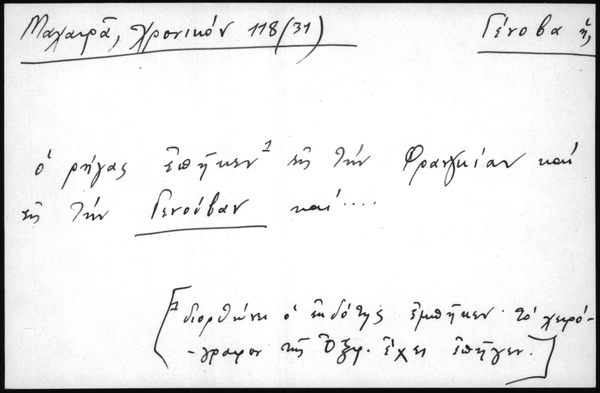 Μαχαιρᾶ, χρονικόν 118(31) Γένοβα ἡ,
ὁ ρήγας ἐπῆκεν¹ εἰς τὴν Φραγκίαν καὶ
εἰς τὴν Γενούβαν καὶ....
[¹ διορθώνει ὁ ἐκδότης ἐμπῆκεν· τὸ χειρό-
-γραφον τῆς Ὀξφ. ἔχει ἐπῆγεν.]